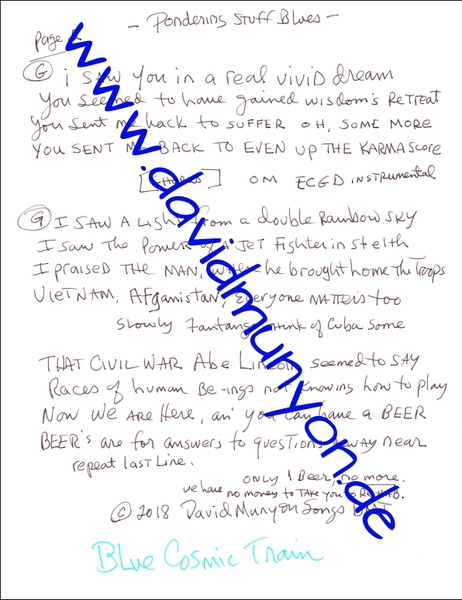 - Pondering Stuff Blues -
page
G I SAW YOU in a real vivid dream
You seemed to have gained wisdom's Retreat
You sent me back to SUFFER OH, SOME MORE
YOU SENT ME BACK TO EVEN UP THE KARMA SCORE
OM ECGD instrumental
G I SAW A Light from a double Rainbow SKY
I saw The Power of A JET Fighter in stelth
I praised THE MAN, when he brought home The Troops
VIETNAM, Afganistan, Everyone MATTers too
Slowly of Cuba Some
THAT CIVIL WAR Abe Lincoln seemed to SAY
Races of human Be-ings not Knowing how to play
Now We ARE Here, an' you can have a BEER
BEER's are for answers to questions away near
repeat last Line.
only 1 Beer, no more.
we have no money to Take you to
© 2018 David Munyon Songs BMI
Blue Cosmic Train
www.davidmunyon.de